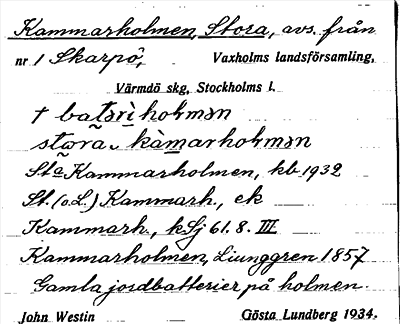 Kammarholmen, Stora, avs. från
nr 1 Skarpö, Vaxholms landsförsamling,
Värmdö skg, Stockholms l.
† batərìhoɫmən
stωra kàmarhoɫmən
Sta Kammarholmen, kb 1932
St. (o.L.) Kammarh., ek
Kammarh., kSj 61. 8. III
Kammarholmen, Ljunggren 1857
Gamla jordbatterier på holmen.
John Westin Gösta Lundberg 1934.